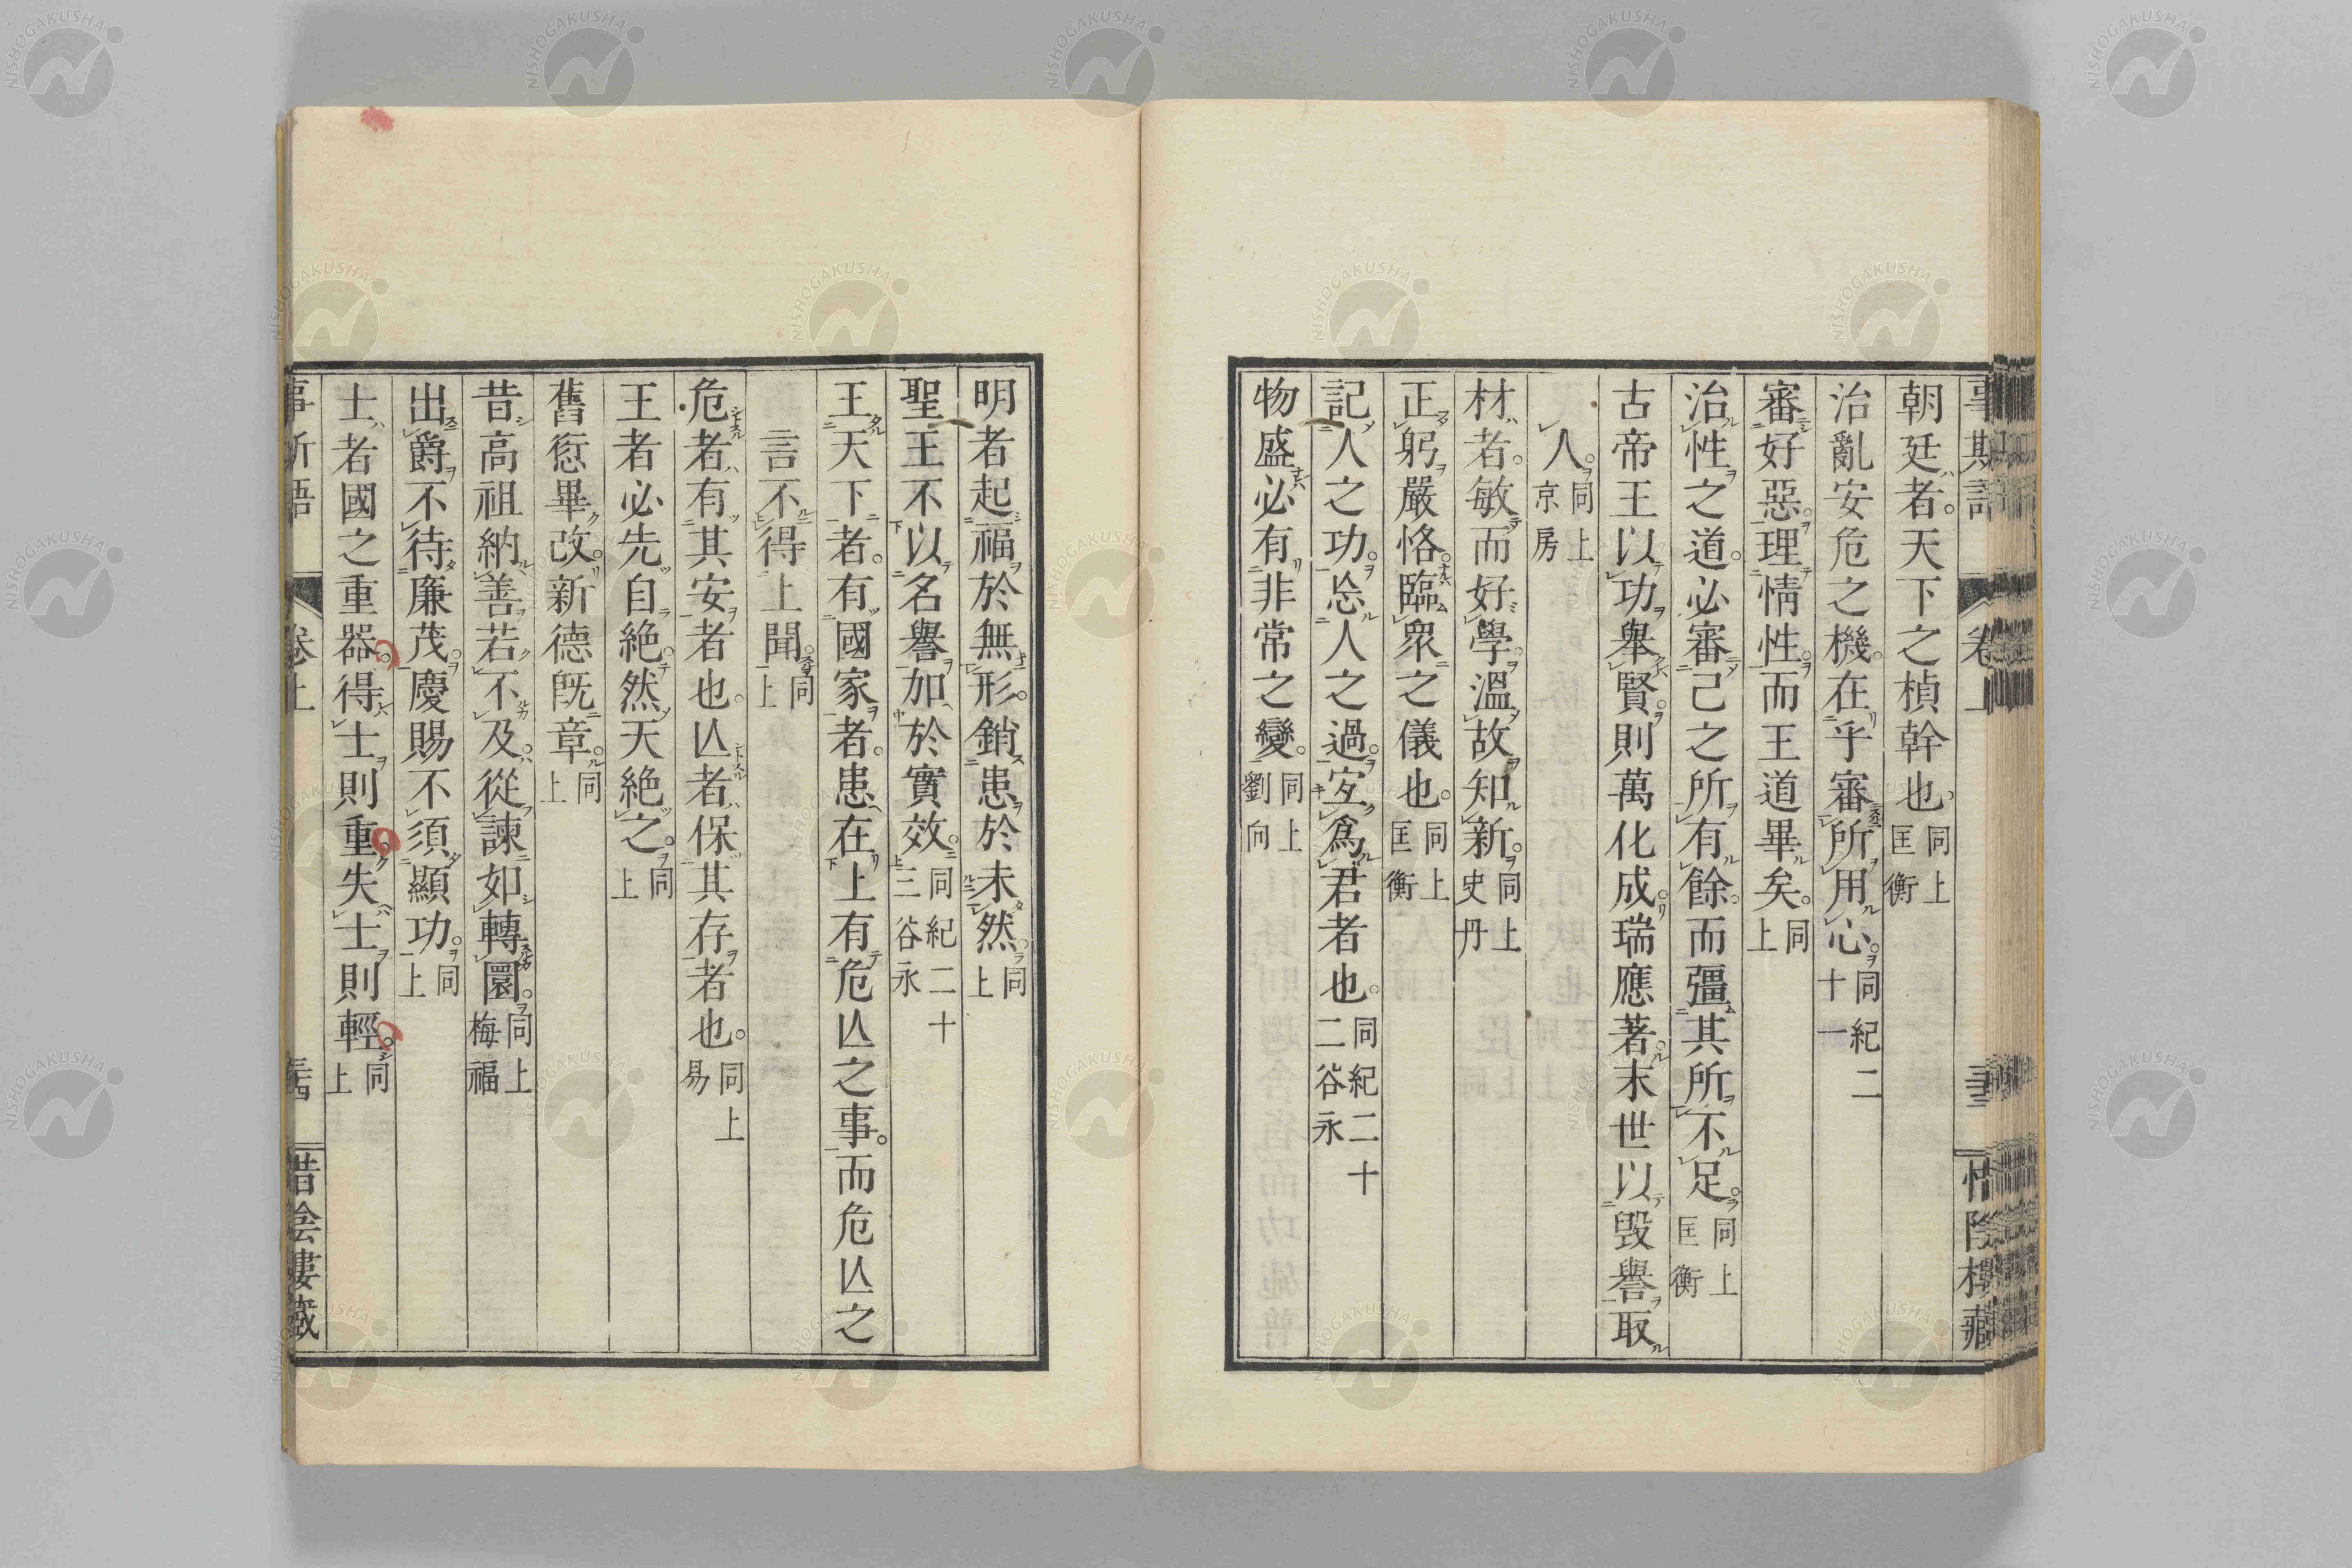 朝廷者。天下之楨幹也。同上匡衡
治亂安危之機。在乎審所用心。同紀二十一
審好惡。理情性。而王道畢矣。同上
治性之道。必審己之所有餘。而彊其所不足。同上匡衡
古帝王以功舉賢。則萬化成。瑞應著。末世以毀譽取
人。同上京房
材者。敏而好學。溫故知新。同上史丹
正躬嚴恪。臨眾之儀也。同上匡衡
記人之功。忘人之過。宜爲君者也。同紀二十二谷永
物盛必有非常之變。同上劉向
明者起福於無形。銷患於未然。同上
聖王不以名譽加於實效。同紀二十三谷永
王天下者。有國家者。患在上有危亾之事。而危亾之
言不得上聞。同上
危者有其安者也。亾者保其存者也。同上易
王者必先自絕。然天絕之。同上
舊愆畢改。新德旣章。同上
昔高祖納善若不及。從諫如轉圜。同上梅福
出爵不待廉茂。慶賜不須顯功。同上
士者國之重器。得士則重。失士則輕。同上
卷上